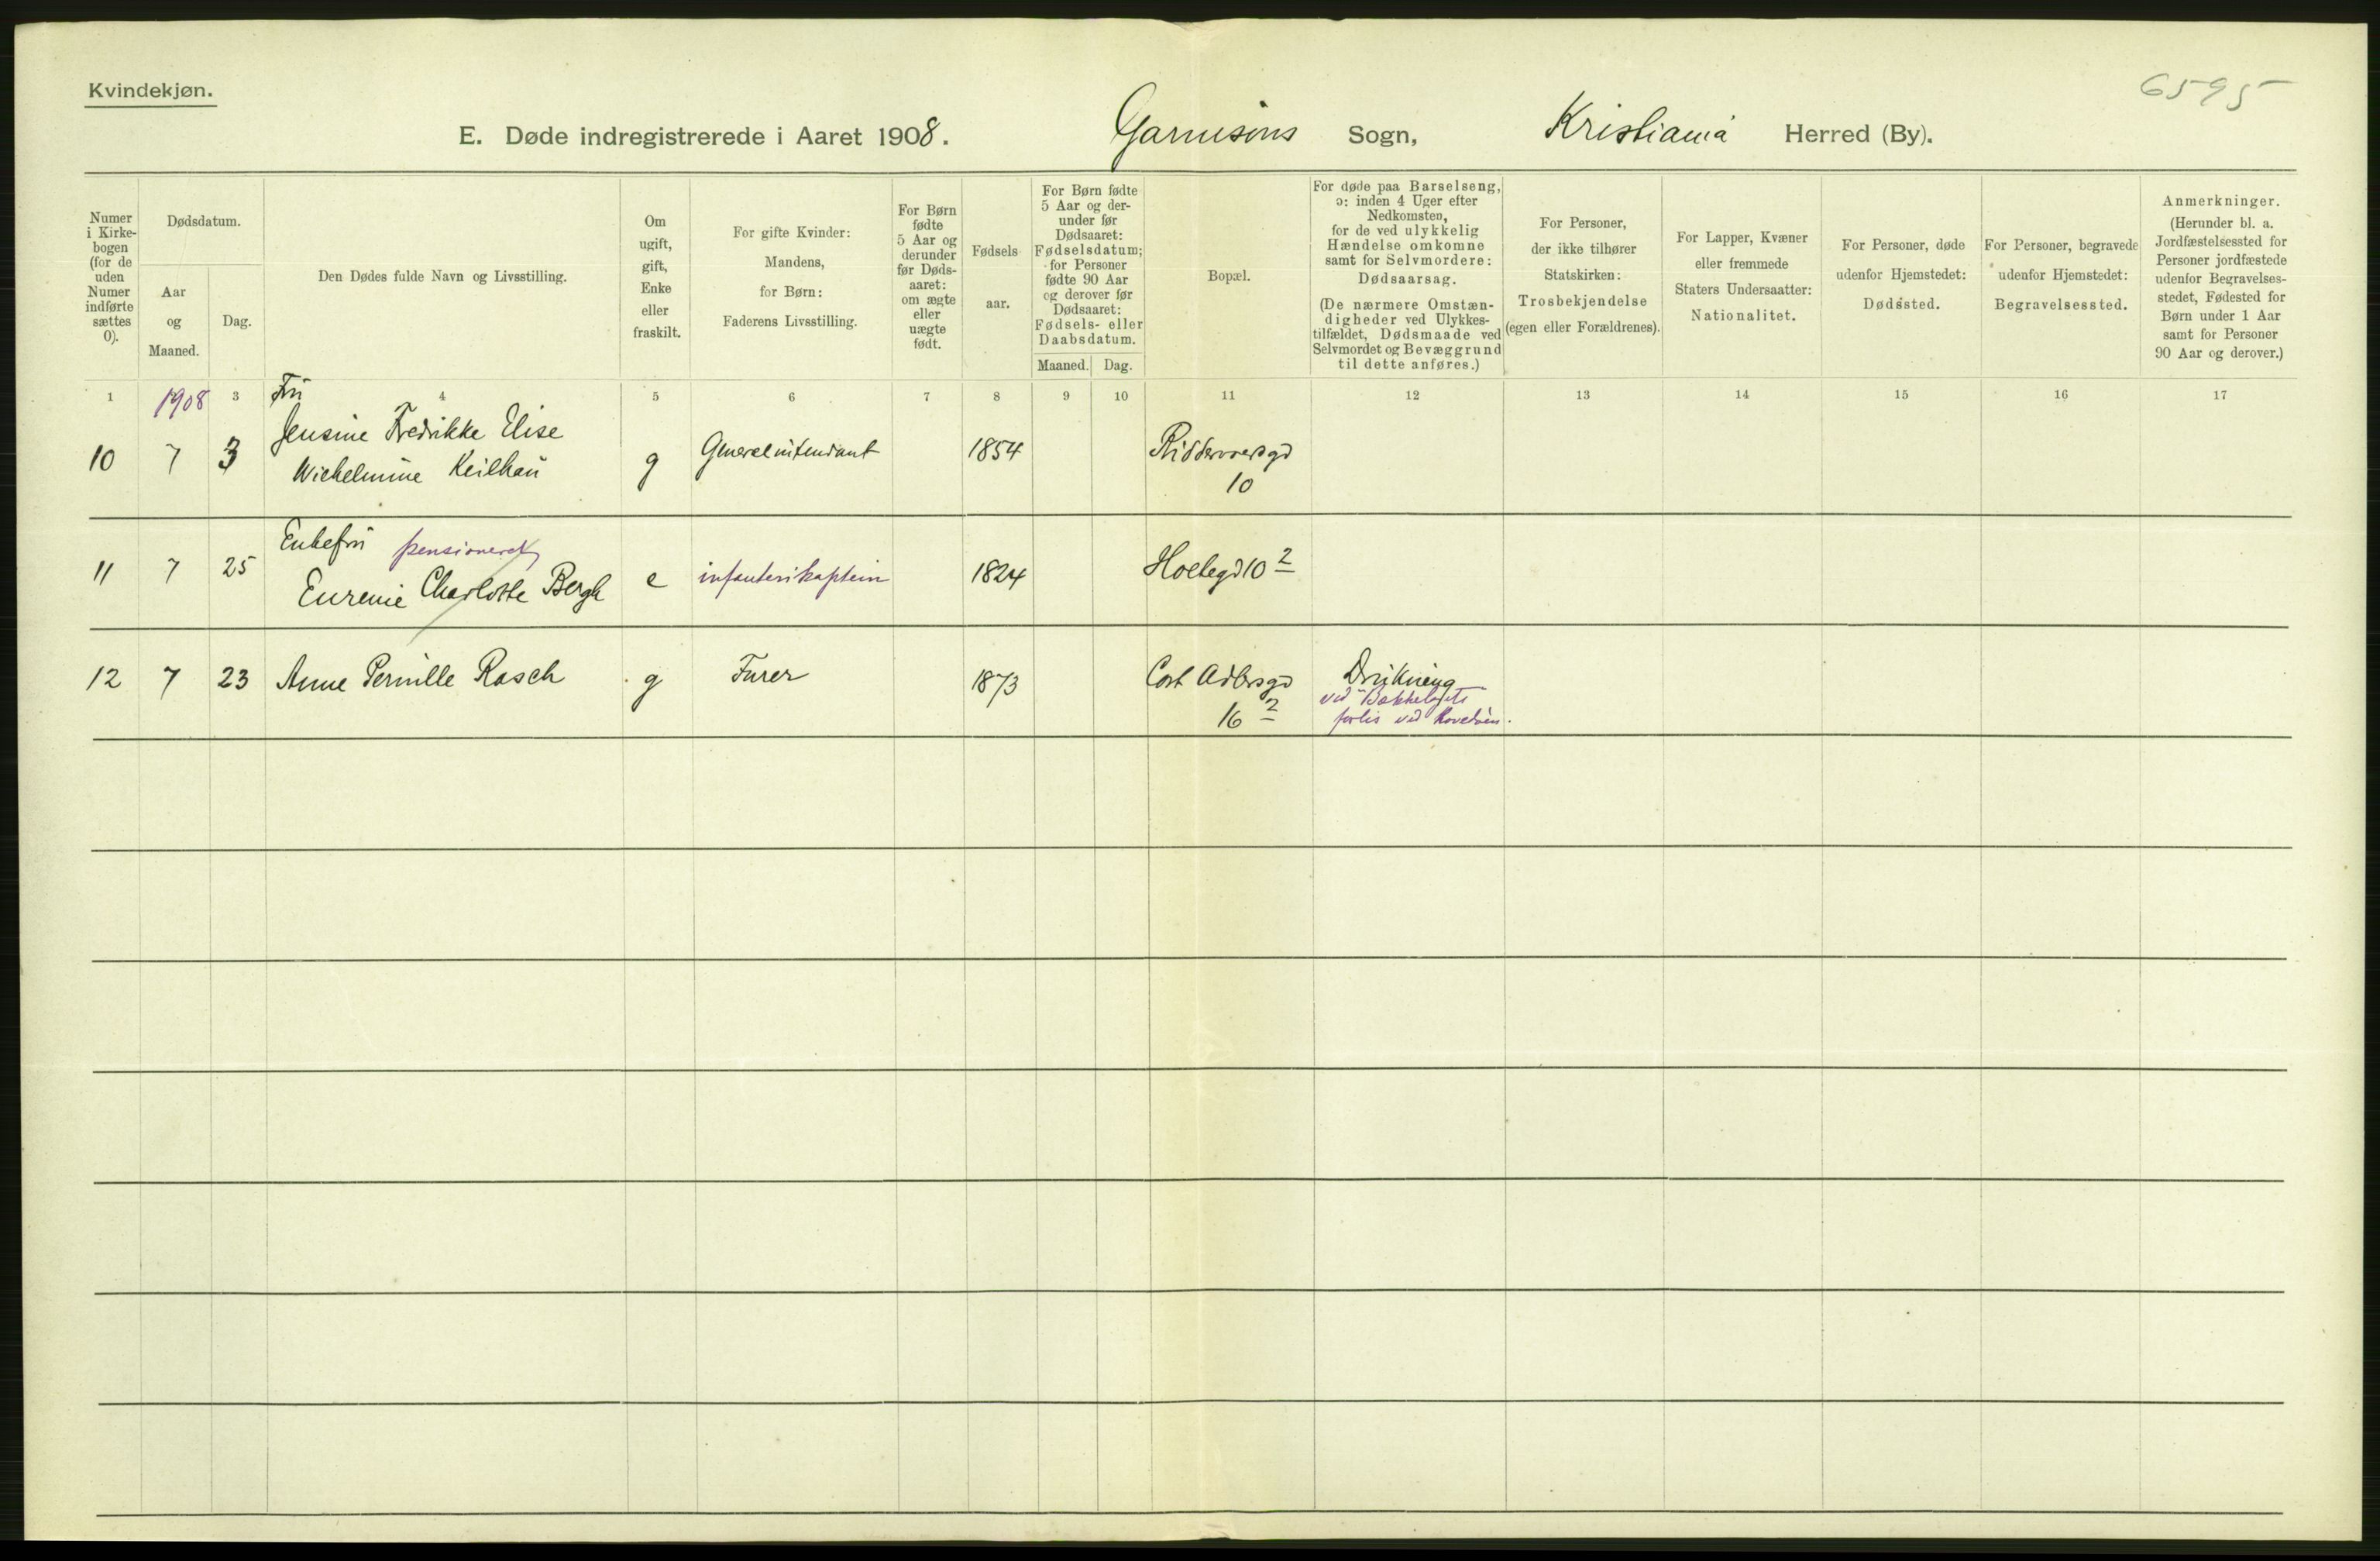 Kvindekjøn.
6595
E. Døde indregistrerede i Aaret 1908. Garnisons Sogn, Kristiania Herred (By).
Numer i Kirke-bogen (for de uden Numer indførte sættes 0).
Dødsdatum.
Aar og Maaned.
Dag.
Den Dødes fulde Navn og Livsstilling.
Om ugift, gift, Enke eller fraskilt.
For gifte Kvinder: Mandens, for Børn: Faderens Livsstilling.
For Børn fødte 5 Aar og derunder før Døds-aaret: om ægte eller uægte født.
Fødsels-aar.
For Børn fødte 5 Aar og der-under før Dødsaaret: Fødselsdatum; for Personer fødte 90 Aar og derover før Dødsaaret: Fødsels- eller Daabsdatum.
Maaned. Dag.
Bopæl.
For døde paa Barselseng, ɔ: inden 4 Uger efter Nedkomsten, for de ved ulykkelig Hændelse omkomne samt for Selvmordere: Dødsaarsag.
(De nærmere Omstæn-digheder ved Ulykkes-tilfældet, Dødsmaade ved Selvmordet og Bevæggrund til dette anføres.)
For Personer, der ikke tilhører Statskirken: Trosbekjendelse (egen eller Forældrenes).
For Lapper, Kvæner eller fremmede Staters Undersaatter: Nationalitet.
For Personer, døde udenfor Hjemstedet: Dødssted.
For Personer, begravede udenfor Hjemstedet: Begravelsessted.
Anmerkninger.
(Herunder bl. a. Jordfæstelsessted for Personer jordfæstede udenfor Begravelses-stedet, Fødested for Børn under 1 Aar samt for Personer 90 Aar og derover.)
1 1908 3 4 5 6 7 8 9 10 11 12 13 14 15 16 17
Fru
Jensine Fredrikke Elise
10 7 3 Wilhelmine Keilhau g Generalintendant 1854
10
Enkefru pensioneret
11 7 25 Eugenie Charlotte Bergh e infanterikaptein 1824 Holtegd 10 2
12 7 23 Anne Pernille Rasch g Furer 1873 Cort Adlersgd Drukning
16 2 ved "Bækkelagets"
forlis ved Hovedøen.